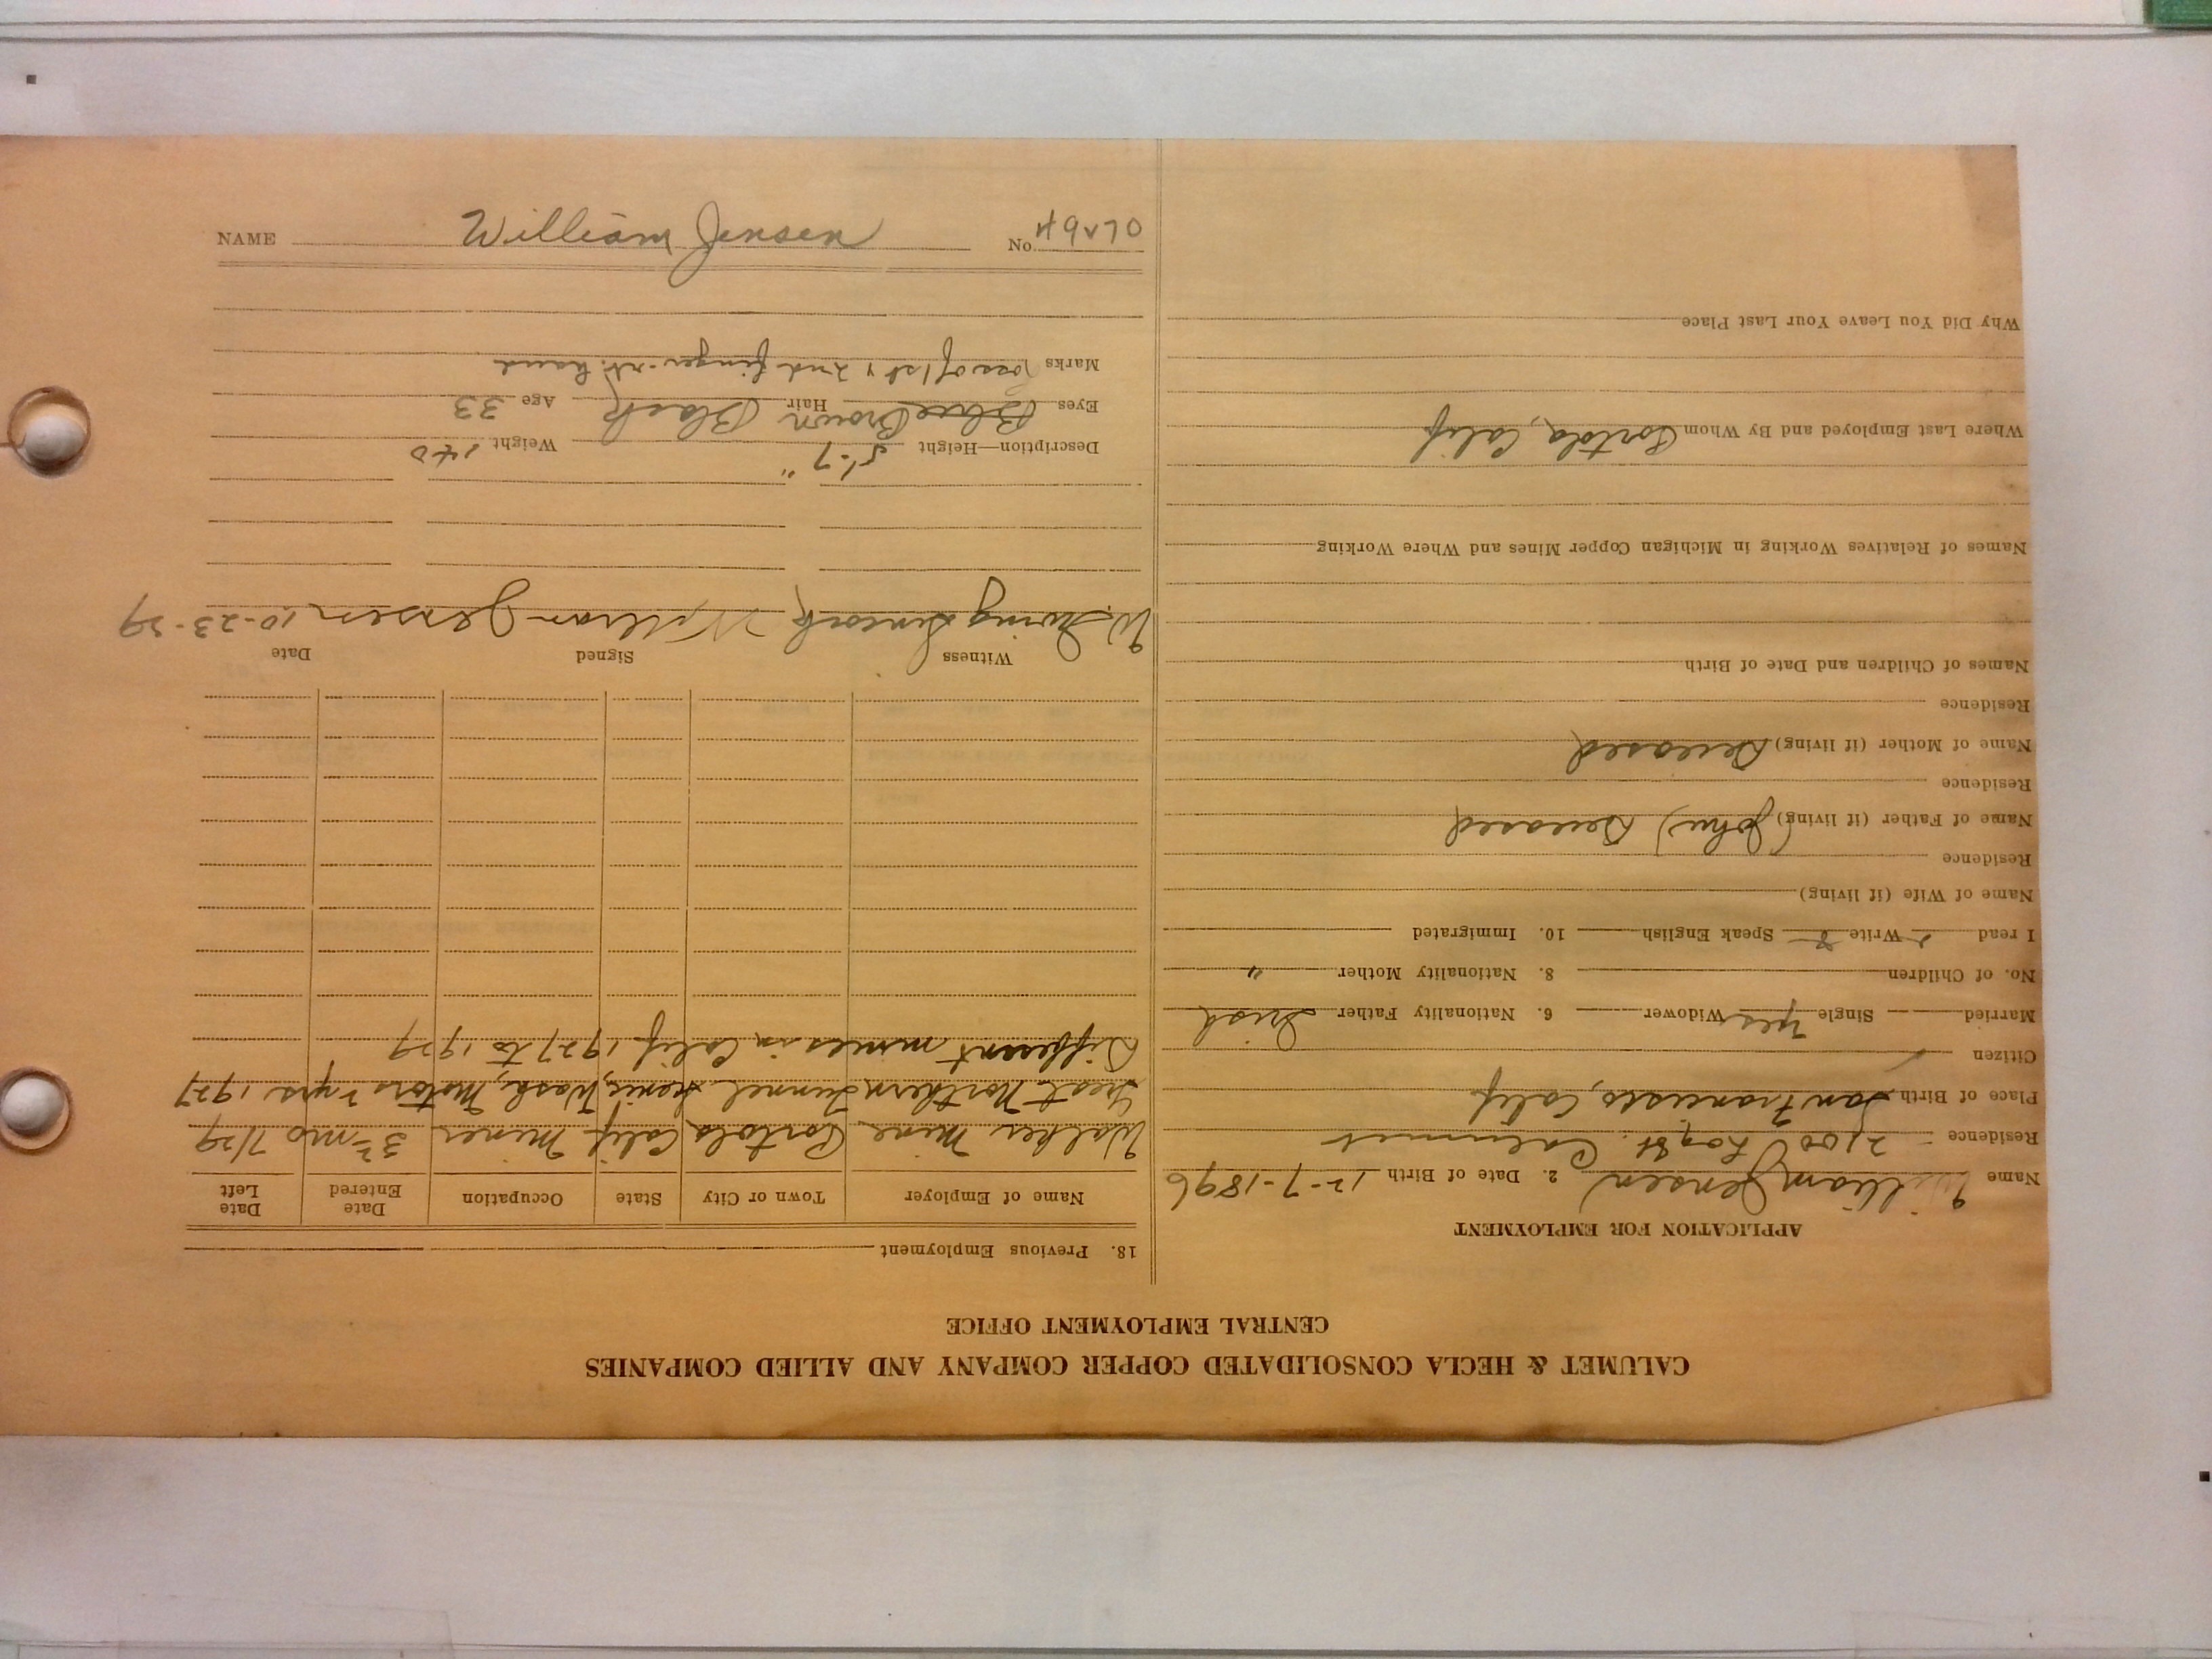 CALUMET & HECLA CONSOLIDATED COPPER COMPANY AND ALLIED COMPANIES
CENTRAL EMPLOYMENT OFFICE
APPLICATION FOR EMPLOYMENT
Name William Jensen 2. Date of Birth 12-7-1896
Residence 2100 St. Calumet
Place of Birth San Francisco, Calif
Citizen ✓
Married Single Yes Widower 6. Nationality Father Irish
No. of Children 8. Nationality Mother "
I read Write Speak English 10. Immigrated
Name of Wife (if living)
Residence
Name of Father (if living) (John) Deceased
Residence
Name of Mother (if living) Deceased
Residence
Names of Children and Date of Birth
Names of Relatives Working in Michigan Copper Mines and Where Working
Where Last Employed and By Whom Portola, Calif
Why Did You Leave Your Last Place
18. Previous Employment
Name of Employer Town or City State Occupation Date Entered Date Left
Walker Mine Portola Calif Miner mo 7/29
Great Northern Tunnel Scenic, Wash, Motors 2 yrs. 1927
Different mines in Calif 1927 to 1929
Witness Signed Date
W. Irving William Jensen 10-23-29
Description—Height 5'-7" Weight 140
Eyes Blue Brown Hair Black Age 33
Marks Loss of 1st & 2nd finger rt. hand
NAME William Jensen No. 49270